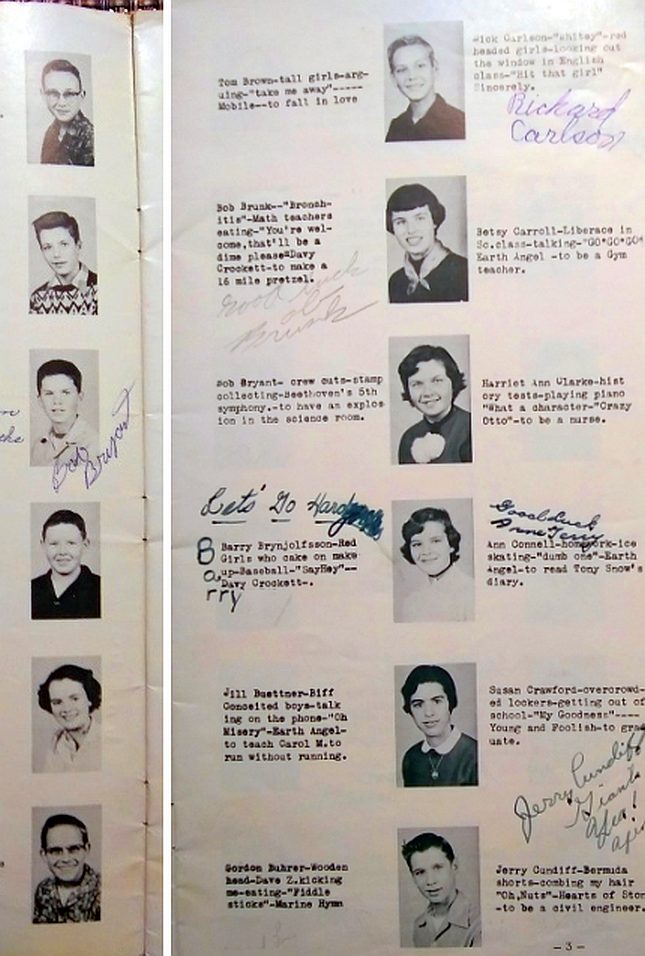 Bob
Bryant
Tom Brown-tall girls-arg-
uing-"take me away"-----
Mobile--to fall in love
Rick Carlson-"Whitey"-red
headed girls-looking out
the window in English
class-"Hit that girl"
Sincerely,
Richard
Carlson
Bob Brunk--"Bronch-
itis"-Math teachers
eating-"You're wel-
come,that'll be a
dime please"Davy
Crockett-to make a
16 mile pretzel.
Good Luck
Brunk
Betsy Carroll-Liberace in
Sc.class-talking-"GO*GO*GO"
Earth Angel -to be a Gym
teacher.
Bob Bryant- crew cuts-stamp
collecting-Beethoven's 5th
symphony.-to have an explos-
ion in the science room.
Harriet Ann Clarke-hist
ory tests-playing piano
"What a character-"Crazy
Otto"-to be a nurse.
Lets' Go
Barry
Barry Brynjolfsson-Red
Girls who cake on make
up-Baseball-"SayHey"--
Davy Crockett-.
Good Luck
Ann Connell-homework-ice
skating-"dumb one"-Earth
Angel-to read Tony Snow's
diary.
Jill Buettner-Biff
Conceited boys-talk
ing on the phone-"Oh
Misery"-Earth Angel-
to teach Carol M.to
run without running.
Susan Crawford-overcrowd-
ed lockers-getting out of
school-"My Goodness"----
Young and Foolish-to grad
uate.
Jerry Cundiff
Giants
Gordon Buhrer-Wooden
head-Dave Z.kicking
me-eating-"Fiddle
sticks"-Marine Hymn
Jerry Cundiff-Bermuda
shorts-combing my hair
"Oh,Nuts"-Hearts of Ston
-to be a civil engineer.
-3-